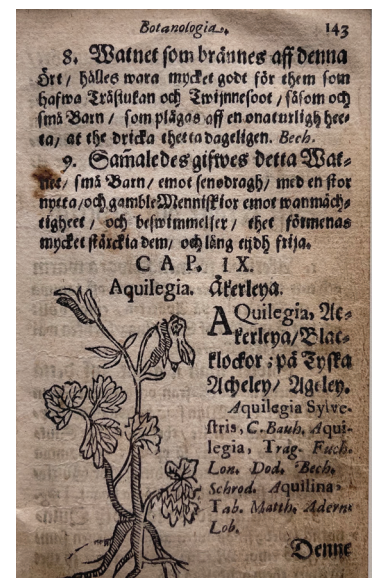 Botanologia. 143
8. Watnet som brännes aff denna
Ört / hålles wara mycket godt för them som
hafwa Träsiukan och Twijnnesoot / såsom och
små Barn / som plågas aff en onaturligh heet-
ta / at the dricka thetta dageligen. Bech.
9. Samaledes gifwes detta Wat-
net / små Barn / emot senedragh / med en stor
nytta / och gamble Menniskior emot wanmäch-
tigheet / och beswimmelser / thet förmenas
mycket stärckia dem / och läng tijdh frija.
CAP. IX.
Aquilegia. Åkerleya.
AQuilegia, Ac-
kerleya / Blac-
klockor; på Tyska
Acheley / Ageley.
Aquilegia Sylve-
stris, C. Bauh. Aqui-
legia, Trag. Fuch.
Lon. Dod. Bech.
Schrod. Aquilina,
Tab. Matth. Adern.
Lob.
Denne